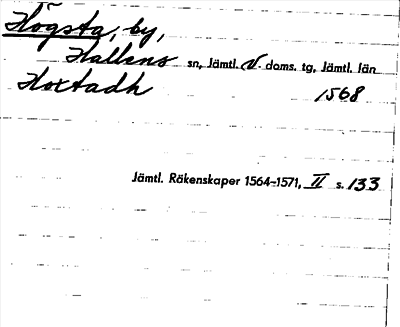 Högsta, by,
Hallens sn, Jämtl. V. doms. tg, Jämtl. län
Hoxtadh 1568
Jämtl. Räkenskaper 1564-1571, II s. 133